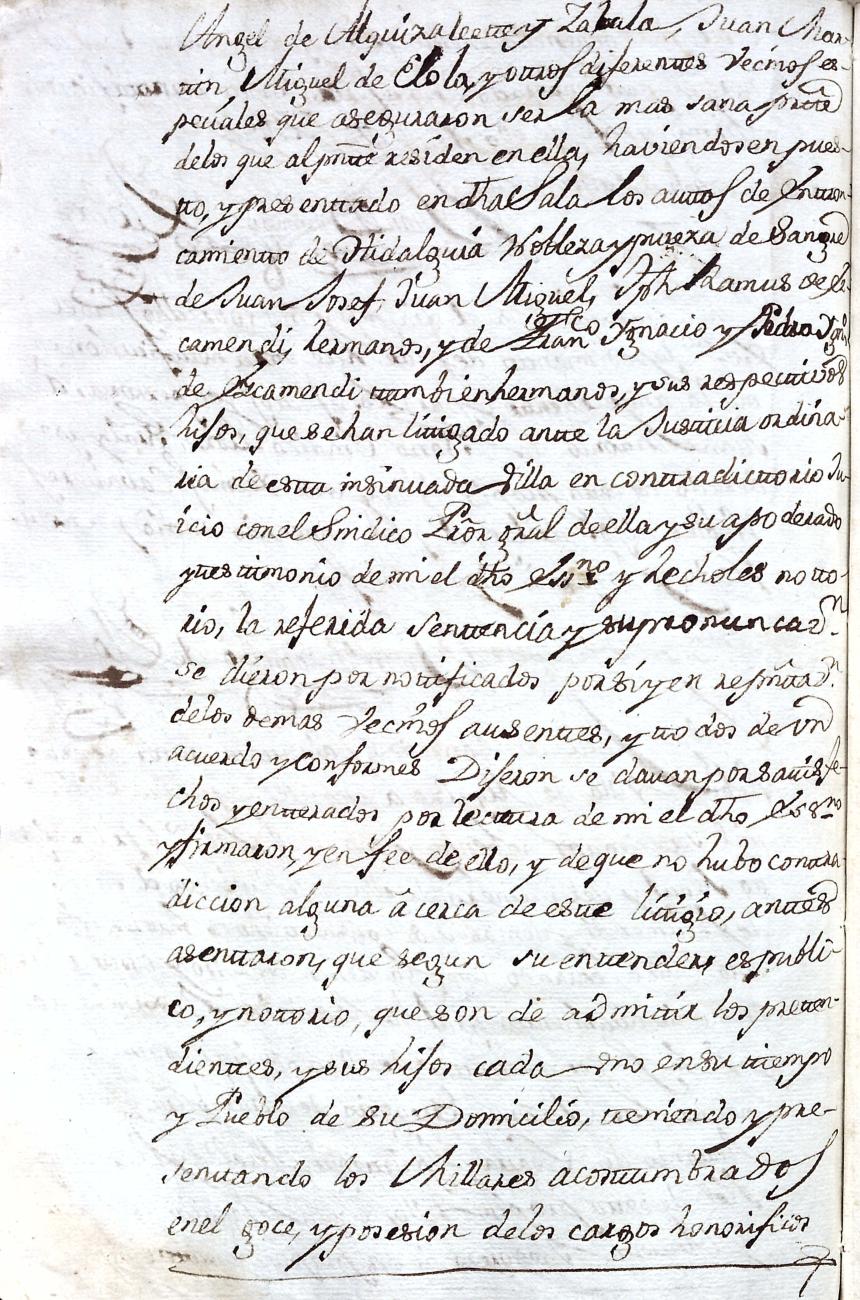 Angel de Alquizalette y Zabala, Juan Mar-
tin Miguel de Elola, y ottros diferenttes Vecinos es-
peciales que aseguraron ser la mas sana partte
delos que alpntte residen en ella, haviendosen pues-
tto, y presenttado en dha Sala los auttos de Enttron-
camientto de Hidalguia Nobleza y pureza de Sangre
de Juan Josef, Juan Miguel, Jph Ramus de Es-
camendi, hermanos, y de Franco Ygnacio y Pedro Ygn
de Escamendi ttambien hermanos, y sus respecttivos
hijos, que se han littigado antte la Justticia ordina-
ria de estta insinuada Villa en conttradicttorio Ju-
icio con el Sindico Pror gral de ella y su apoderado
y ttesttimonio de mi el dho Essno y hecholes notto-
rio, la referida senttencia y su pronunciaon
se dieron por nottificados por si y en represnttaon
delos demas Vecinos ausenttes, y ttodos de un
acuerdo y conformes Dijeron se davan por sattisfe-
chos y entterados por lecttura de mi el dho Essno
y firmaron y en fee de ello, y de que no hubo conttra-
diccion alguna â cerca de estte littigio, anttes
asenttaron, que segun su enttender, es publi-
co, y nottorio, que son de admittir los pretten-
dienttes, y sus hijos cada uno en su ttiempo
y Pueblo de su Domicilio, tteniendo y pre-
senttando los Millares acosttumbrados
en el goce, y posesion delos cargos honorificos